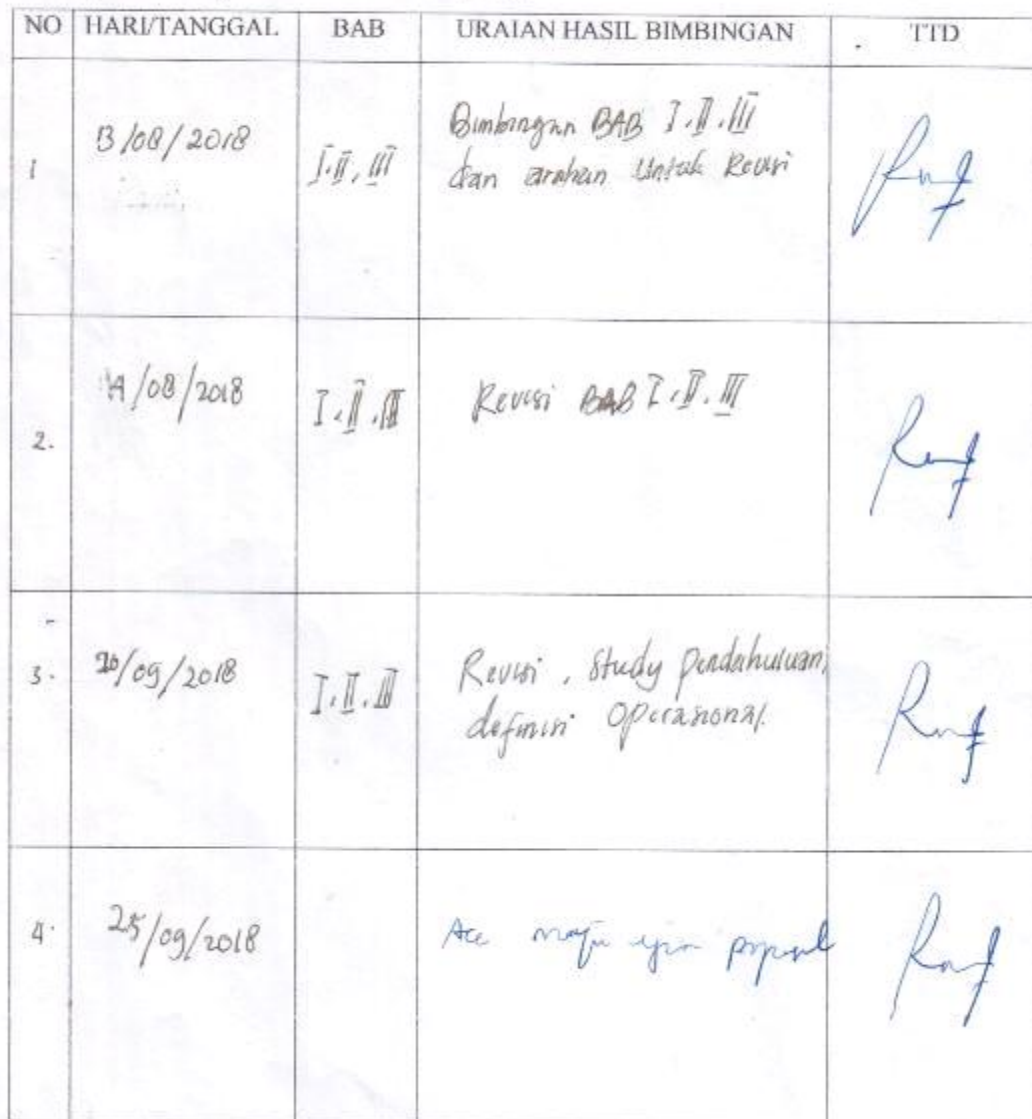 NO HARI/TANGGAL BAB URAIAN HASIL BIMBINGAN TTD
1 13/08/2018 I.II.III Bimbingan BAB I.II.III
dan arahan Untuk Revisi
2. 14/08/2018 I.II.III Revisi BAB I.II.III
3. 20/09/2018 I.II.III Revisi, Study Pendahuluan,
definisi Operasional.
4. 25/09/2018 Acc maju ujian proposal